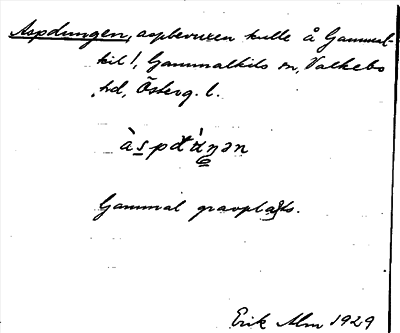 Aspdungen, aspbevuxen kulle å Gammal-
kil 1, Gammalkils sn, Valkebo
hd, Österg. l.
àspdúŋən
Gammal gravplats.
Erik Alm 1929